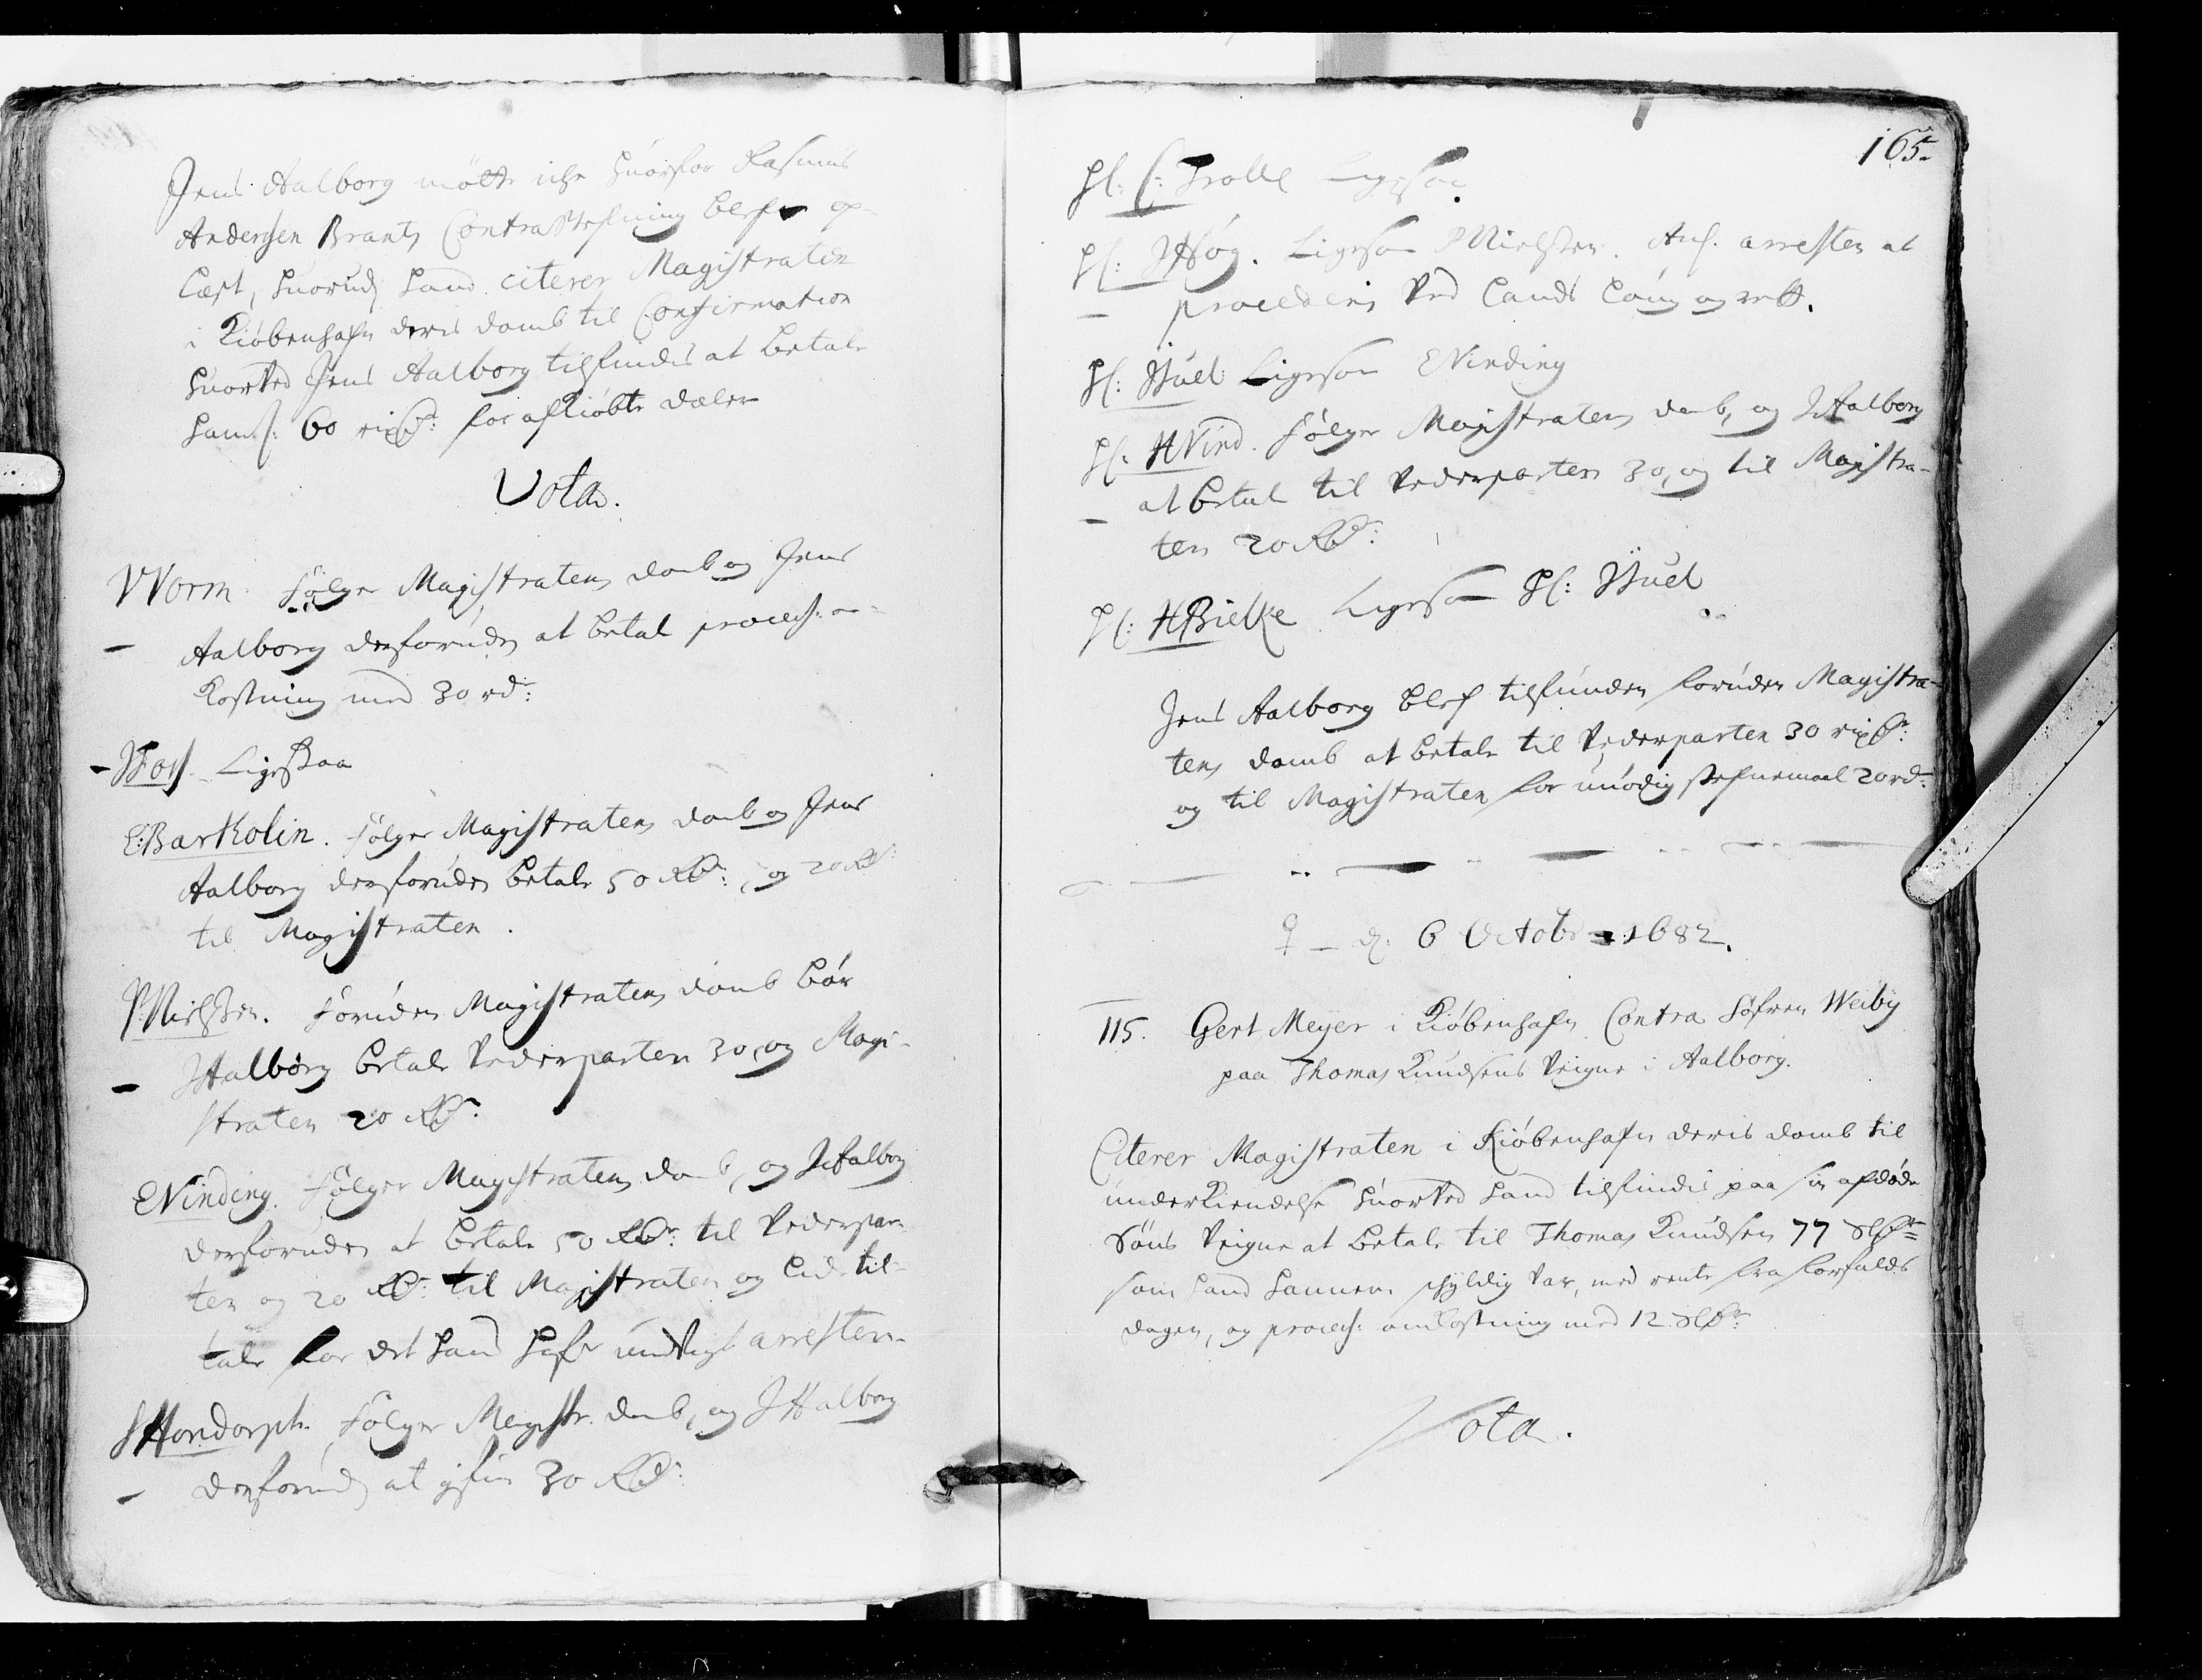 Jens Aalborg mötte iche huorfor Rasmus
Andersen Brants Contrastefning blef op-
læst, huorudj hand citerer Magistraten
i Kiöbenhafn deris domb til Confirmation
huorved Jens Aalborg tilfindis at betale
ham 60 rixdr: for afkiöbte dæler
Vota.
WWorm. Fölger Magistratens domb og Jens
Aalborg desforuden at betale process: om-
kostning med 30 rd:
Ligesaa
C:Bartholin. Fölger Magistratens domb og Jens
Aalborg desforuden betale 50 Rdr:, og 20 Rd
til Magistraten.
PNielsen. Foruden Magistratens domb bör
JAalborg betale Vederparten 30, og Magi-
straten 20 Rdr:
EVinding. Fölger Magistratens domb, og JAalborg
desforuden at betale 50 Rdr: til Vederpar-
ten og 20 Rdr: til Magistraten og lide til-
tale for det hand hafr arresten.
Hondorph. Fölger Magistr: domb, og JAalborg
desforuden at gifve 30 Rdr:
165.
Hl: Trolle Ligesaa.
Hl: JHög. Ligesom PNielsen. Anl. arresten at
procederis ved Lands Laug og rett.
Hl: JJuel Ligesom EVinding
Hl: HVind. Fölger Magistratens domb, og JAalborg
at betale til Vederparten 30, og til Magistra-
ten 20 Rdr:
Hl: HBielke Ligesom Hl: JJuel
Jens Aalborg blef tilfunden foruden Magistra-
tens domb at betale til Vederparten 30 rixdr:
og til Magistraten for unödig stefnemaal 20 rd:
♀ d: 6 Octobr 1682.
115. Gert Meyer i Kiöbenhafn Contra Söfren Weiby
paa Thomas Knudsens Veigne i Aalborg.
Citerer Magistraten i Kiöbenhafn deris domb til
underkiendelse huorved hand tilfindis paa sin afdöde
Söns Veigne at betale til Thomas Knudsen 77 Sldr:
som hand hannem schyldig var, med rente fra forfalds
dagen, og process: omkostning med 12 Sldr:
Vota.